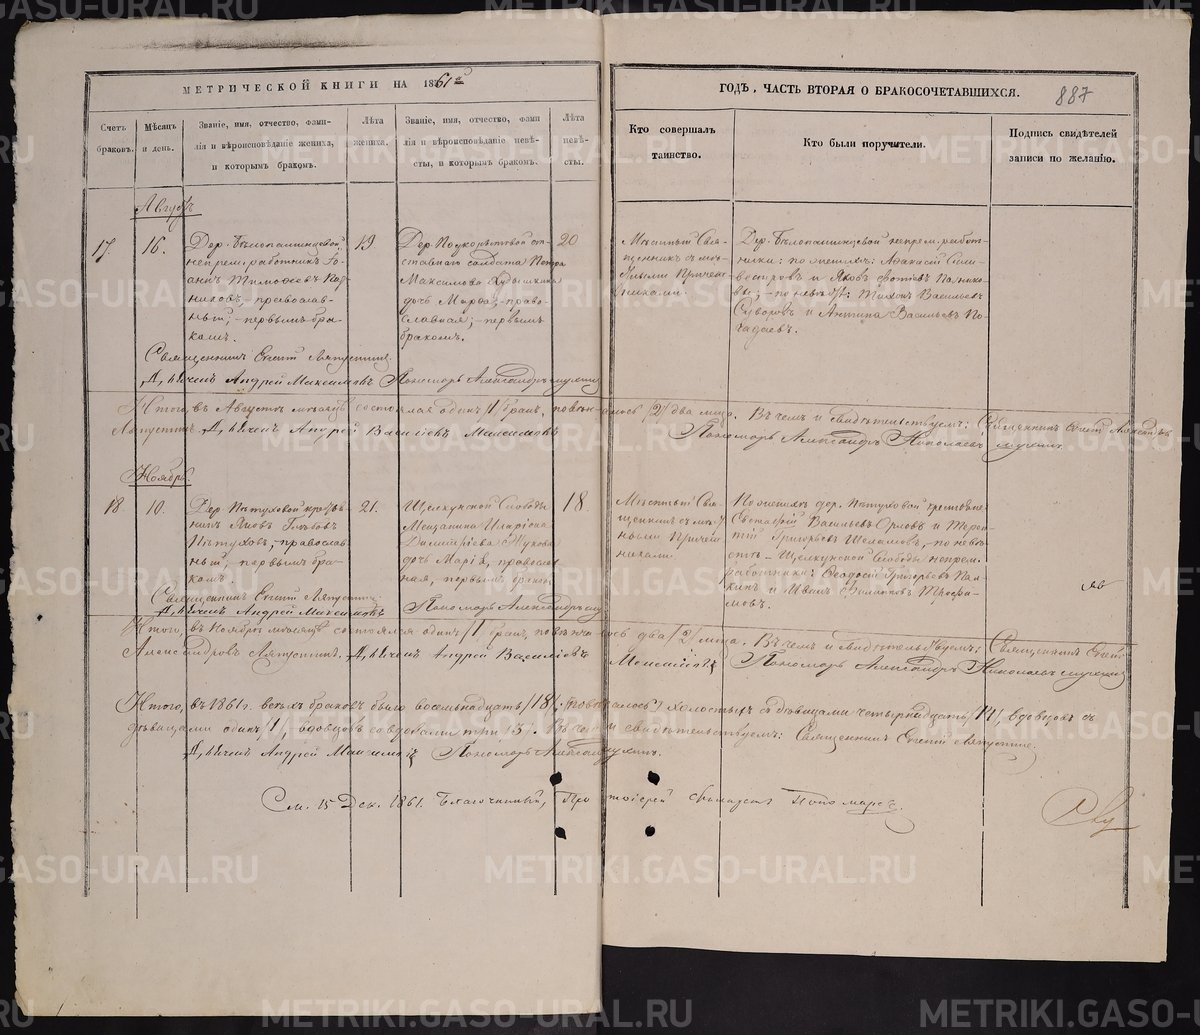 МЕТРИЧЕСКОЙ КНИГИ НА 1861й
ГОДЪ, ЧАСТЬ ВТОРАЯ О БРАКОСОЧЕТАВШИХСЯ.
887
Счетъ браковъ.
Мѣсяцъ и день.
Званіе, имя, отчество, фами-
лія и вѣроисповѣданіе жениха,
и которымъ бракомъ.
Лѣта жениха.
Званіе, имя, отчество, фами
лія и вѣроисповѣданіе невѣ-
сты, и которымъ бракомъ.
Лѣта невѣ-
сты.
Кто совершалъ
таинство.
Кто были поручители.
Подпись свидѣтелей
записи по желанію.
Августъ
17.
16.
непрем. работникъ Іо-
аннъ Тимофеевъ
православ-
ный, первымъ бра-
комъ.
19
ставнаго солдата Петра
Максимова
дочь Марѳа, право-
славная, первымъ
бракомъ.
20
Мѣстный Свя-
щенникъ съ мѣ-
стными Причет-
никами.
непрем. работ-
ники: по женихѣ: Аѳанасій Сили-
вестровъ и Яковъ Фотіевъ
по невѣстѣ: Тихонъ Васильевъ
Суворовъ и Антипа Васильевъ
Священникъ Евгеній Ляпустинъ.
Дьячекъ Андрей Максимовъ Пономарь Александръ
Итого, въ Августѣ мѣсяцѣ состоялся одинъ /1/ бракъ, повѣнчалось /2/ два лица. Въ чемъ и свидѣтельствуемъ: Священникъ Евгеній Александровъ
Ляпустинъ. Дьячекъ Андрей Василіевъ Пономарь Александръ Николаевъ
Ноябрь.
18
10.
Дер. Пѣтуховой крестья-
нинъ Яковъ Глѣбовъ
Пѣтуховъ, православ-
ный, первымъ бра-
комъ.
21.
Щелкунской Слободы
Мещанина Иларіона
Димитріева Жукова
дочь Марія, православ-
ная, первымъ бракомъ
18.
Мѣстный Свя-
щенникъ съ мѣст-
ными Причет-
никами.
По женихѣ дер. Пѣтуховой крестьяне
Васильевъ Орловъ и Терен-
тій Григорьевъ по невѣ-
стѣ – Щелкунской Слободы непрем.
работники: Ѳеодосій Григорьевъ
и Иванъ Филиповъ Трофи-
мовъ.
Священникъ Евгеній Ляпустинъ.
Дьячекъ Андрей Максимовъ Пономарь Александръ
Итого, въ Ноябрѣ мѣсяцѣ состоялся одинъ /1/ бракъ, повѣнчалось два /2/ лица. Въ чемъ и свидѣтельствуемъ: Священникъ Евгеній
Александровъ Ляпустинъ. Дьячекъ Андрей Василіевъ Пономарь Александръ Николаевъ
Итого, въ 1861 г. всѣхъ браковъ было восемнадцать /18/. повѣнчалось: холостыхъ съ дѣвицами четырнадцать /14/, вдовцовъ съ
дѣвицами одинъ /1/, вдовцовъ со вдовами три /3/. Въ чемъ и свидѣтельствуемъ: Священникъ Евгеній Ляпустинъ.
Дьячекъ Андрей Максимовъ Пономарь Александръ
См. 15 Дек. 1861. Благочинный, Протоіерей Пономаревъ.
METRIKI.GASO-URAL.RU